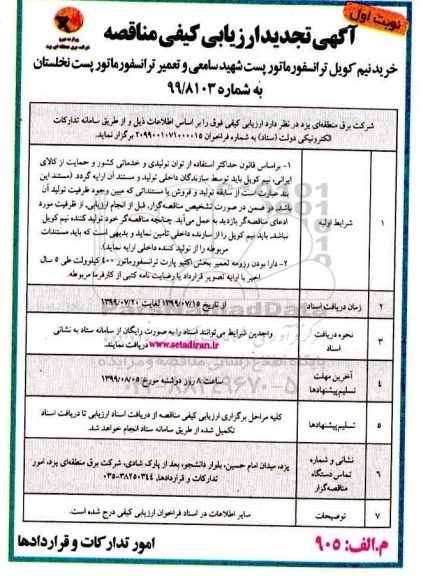 نوبت اول
آگهی تجدید ارزیابی کیفی مناقصه
خرید نیم کویل ترانسفورماتور پست شهید سامعی و تعمیر ترانسفورماتور پست نخلستان
به شماره ۹۹/۸۱۰۳
شرکت برق منطقه‌ای یزد در نظر دارد ارزیابی کیفی فوق را بر اساس اطلاعات ذیل و از طریق سامانه تدارکات
الکترونیکی دولت (ستاد) به شماره فراخوان ۲۰۹۹۰۰۱۰۷۱۰۰۰۰۱۵ برگزار نماید.
۱ شرایط اولیه
۱- براساس قانون حداکثر استفاده از توان تولیدی و خدماتی کشور و حمایت از کالای
ایرانی، نیم کویل باید توسط سازندگان داخلی تولید و مستند آن ارایه گردد. (مستند این
بند عبارت است از سابقه تولید و فروش یا مستنداتی که مبین وجود ظرفیت تولید آن
باشد. در ضمن در صورت تشخیص مناقصه‌گزار، قبل از انجام ارزیابی، از ظرفیت مورد
ادعای مناقصه‌گر بازدید به عمل می‌آید. چنانچه مناقصه‌گر خود تولید کننده نیم کویل
نباشد، باید نیم کویل را از سازنده داخلی تامین نماید و بدیهی است که باید مستندات
مربوطه را از تولید کننده داخلی ارایه نماید).
۲- دارا بودن رزومه تعمیر بخش اکتیو پارت ترانسفورماتور ۴۰۰ کیلوولت طی ۵ سال
اخیر با ارایه تصویر قرارداد یا رضایت نامه کتبی از کارفرما مربوطه.
۲ زمان دریافت اسناد از تاریخ ۱۳۹۹/۰۷/۱۵ لغایت ۱۳۹۹/۰۷/۲۰
۳ نحوه دریافت اسناد
واجدین شرایط می‌توانند اسناد را به صورت رایگان از سامانه ستاد به نشانی
www.setadiran.ir دریافت نمایند.
۴ آخرین مهلت تسلیم پیشنهادها ساعت ۸ روز دوشنبه مورخ ۱۳۹۹/۰۸/۰۵
۵ تسلیم پیشنهادها
کلیه مراحل برگزاری ارزیابی کیفی مناقصه از دریافت اسناد ارزیابی تا دریافت اسناد
تکمیل شده از طریق سامانه ستاد انجام خواهد شد.
۶ نشانی و شماره تماس دستگاه مناقصه‌گزار
یزد، میدان امام حسین، بلوار دانشجو، بعد از پارک شادی، شرکت برق منطقه‌ای یزد، امور
تدارکات و قراردادها، ۳۸۲۵۰۳۴۴-۰۳۵
۷ توضیحات سایر اطلاعات در اسناد فراخوان ارزیابی کیفی درج شده است.
م.الف: ۹۰۵
امور تدارکات و قراردادها